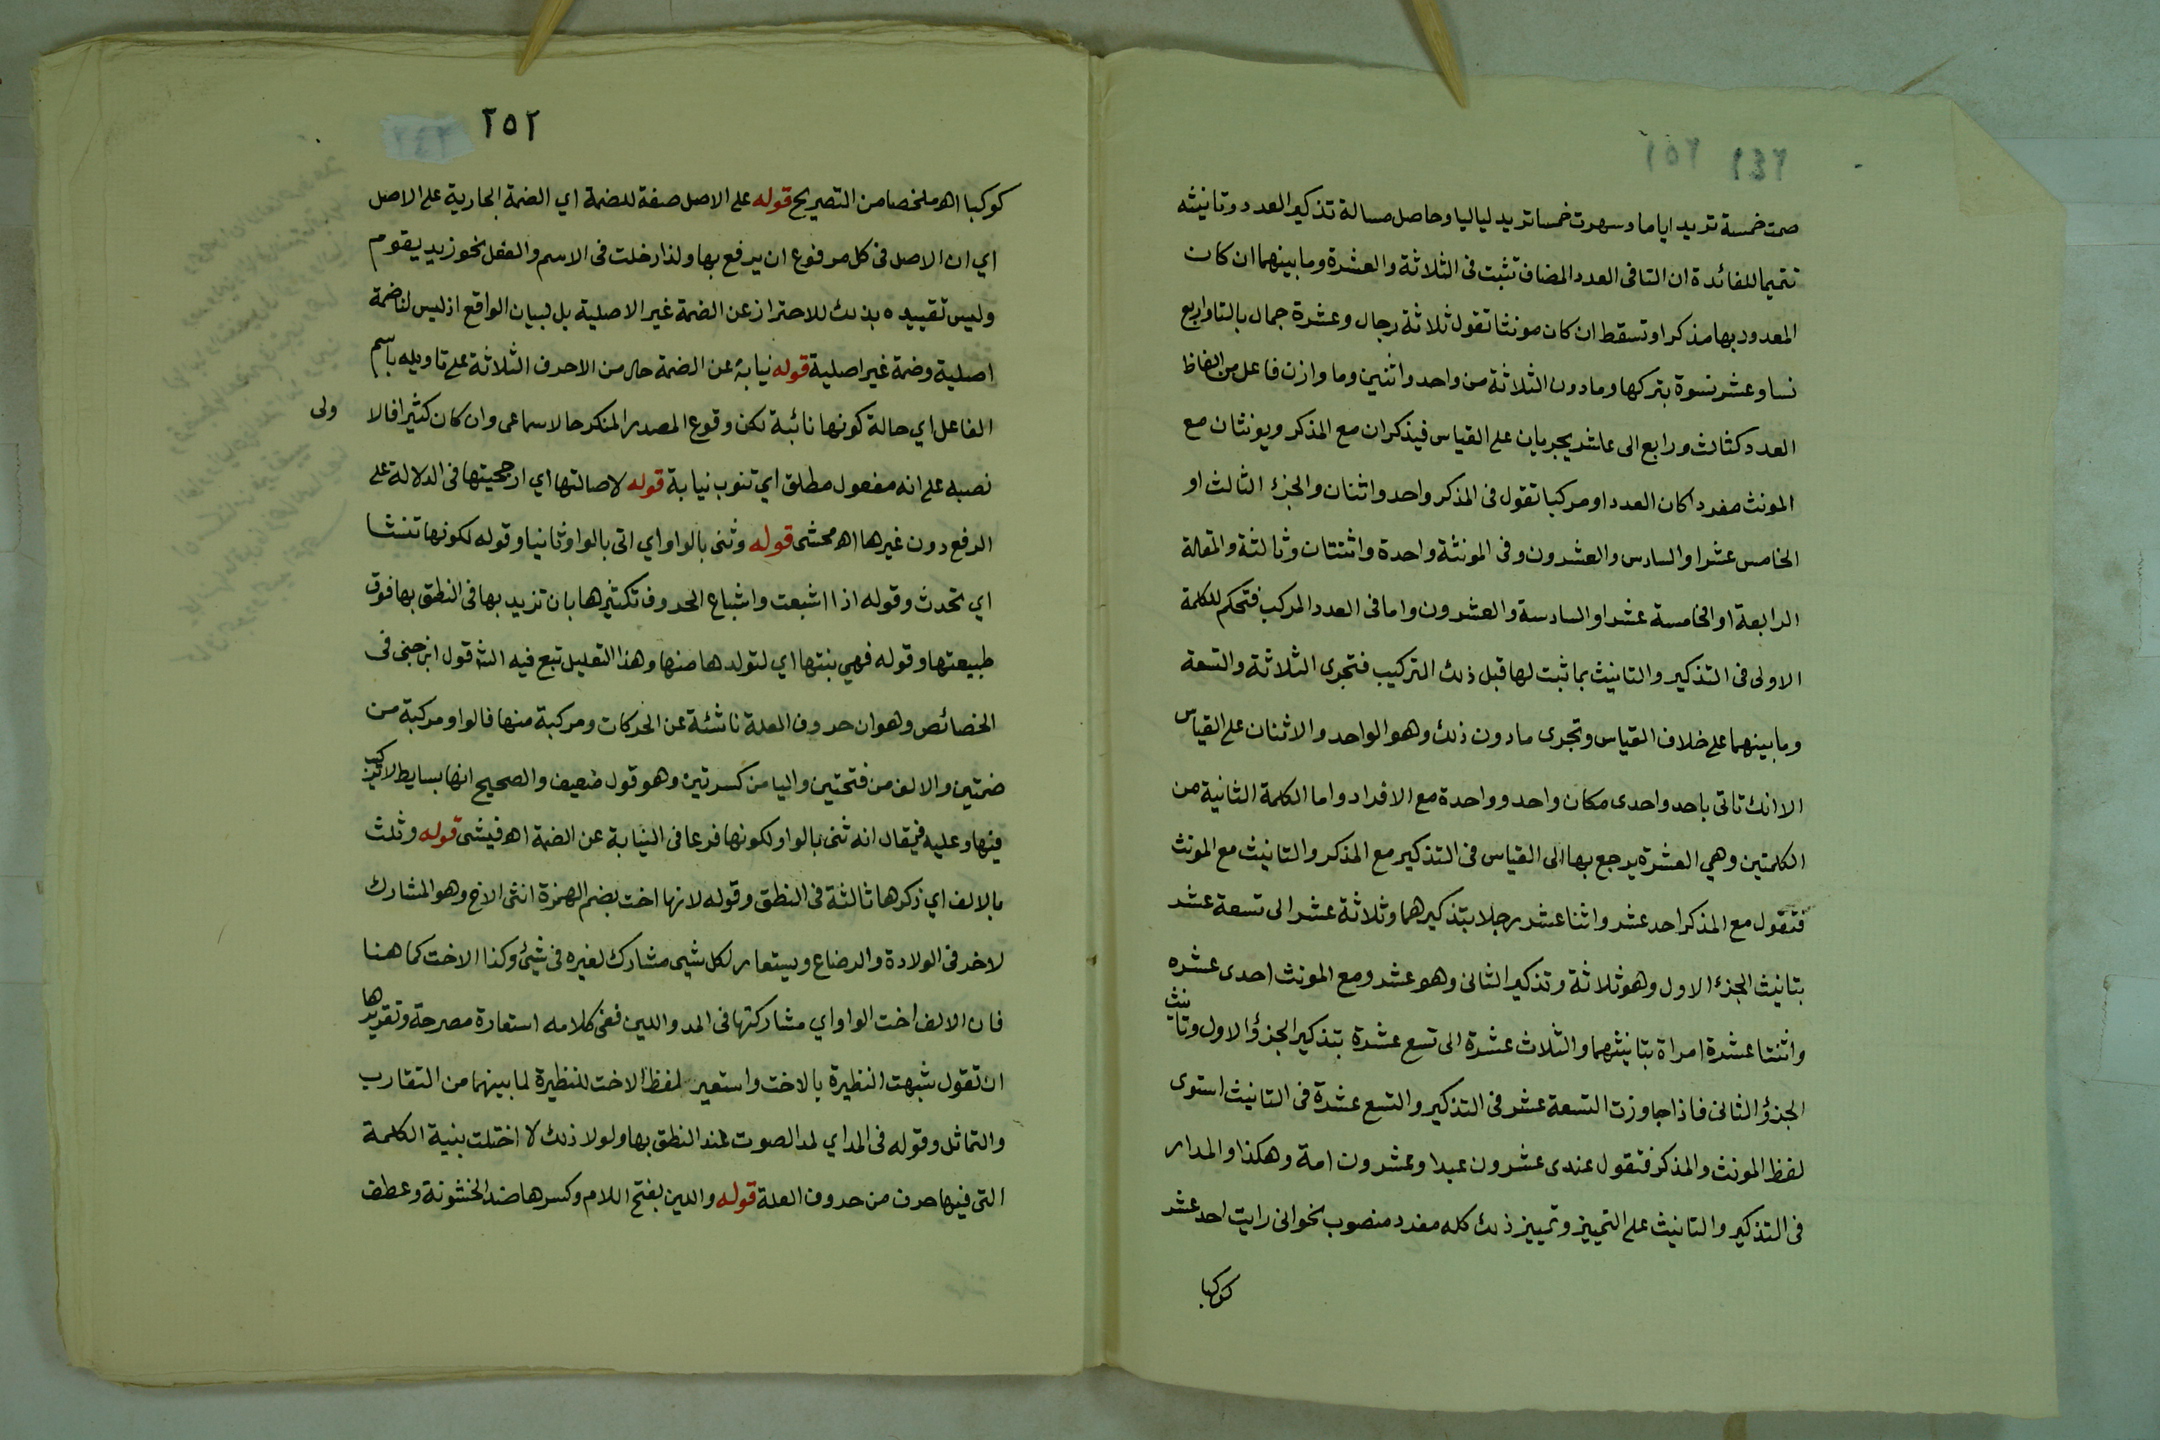 صمت خمسة تريد اياما وسهرت خمسا تريد لياليا وحاصل مسالة تذكير العدد وتانيثه
تتميما للفائدة ان التا فى العدد المضاف تثبت فى الثلاثة والعشرة وما بينهما ان كان
المعدود بها مذكرا وتسقط ان كان مونثا تقول ثلاثة رجال وعشرة جمال بالتا واربع
نسا وعشر نسوة بتركها وما دون الثلاثة من واحد واثنين وما وازن فاعل من الفاظ
العدد كثالث ورابع الى عاشر يجريان على القياس فيذكران مع المذكر ويونثان مع
المونث مفردا كان العدد او مركبا تقول فى المذكر واحد واثنان والجزء الثالث او
الخامس عشر او السادس والعشرون وفى المونثة واحدة واثنتان وثالثة والمقالة
الرابعة او الخامسة عشر او السادسة والعشرون واما فى العدد المركب فتحكم للكلمة
الاولى فى التذكير والتانيث بما ثبت لها قبل ذلك التركيب فتجرى الثلاثة والتسعة
وما بينهما على خلاف القياس وتجرى مادون ذلك وهو الواحد والاثنان على القياس
الا انك تاتى باحد واحدى مكان واحد وواحدة مع الافراد واما الكلمة الثانية من
الكلمتين وهي العشرة يرجع بها الى القياس فى التذكير مع المذكر والتانيث مع المونث
فتقول مع المذكر احد عشر واثنا عشر رجلا بتذكيرهما وثلاثة عشر الى تسعة عشر
بتانيث الجزء الاول وهو ثلاثة وتذكير الثانى وهو عشر ومع المونث احدى عشره
واثنتا عشرة امراة بتانيثهما والثلاث عشرة الى تسع عشرة بتذكير الجزؤ الاول وتانيث
الجزؤ الثانى فاذا جاوزت التسعة عشر فى التذكير والتسع عشرة فى التانيث استوى
لفظ المونث والمذكر فتقول عندى عشرون عبدا وعشرون امة وهكذا والمدار
فى التذكير والتانيث على التمييز وتمييز ذلك كله مفرد منصوب نحو انى رايت احد عشر
كوكبا
٢٤١ ٢٥١
٢٥٢
٢٤٢
كوكبا اهـ ملخصا من التصريح قوله على الاصل صفة للضمة اي الضمة الجارية على الاصل
اي ان الاصل فى كل مرفوع ان يرفع بها ولذا دخلت فى الاسم والفعل نحو زيد يقوم
وليس تقييده بذلك للاحتراز عن الضمة غير الاصلية بل لبيان الواقع اذ ليس لنا ضمة
اصلية وضمة غير اصلية قوله نيابة عن الضمة حال من الاحرف الثلاثة على تاويله باسم
الفاعل اي حالة كونها نائبة لكن وقوع المصدر المنكر حالا سماعى وان كان كثيرا فالا
ولى
نصبه على انه مفعول مطلق اي تنوب نيابة قوله لاصالتها اي ارجحيتها فى الدلالة على
الرفع دون غيرها اهـ محشى قوله وثنى بالواو اي اتى بالواو ثانيا وقوله لكونها تنشا
اي تحدث وقوله اذا اشبعت واشباع الحروف تكثيرها بان تزيد بها فى النطق بها فوق
طبيعتها وقوله فهي بنتها اي لتولدها منها وهذا التعليل تبع فيه الش قول ابن جنى فى
الخصائص وهو ان حروف العلة ناشئة عن الحركات ومركبة منها فالواو مركبة من
ضمتين والالف من فتحتين واليا من كسرتين وهو قول ضعيف والصحيح انها بسايط لا تركيب
فيها وعليه فيقال انه ثنى بالواو لكونها فرعا فى النيابة عن الضمة اهـ فيشى قوله وثلث
بالالف اي ذكرها ثالثة فى النطق وقوله لانها اخت بضم الهمزة انثى الاخ وهو المشارك
لاخر فى الولادة والرضاع ويستعار لكل شيى مشارك لغيره فى شيئ وكذا الاخت كما هنا
فان الالف اخت الواو اي مشاركتها فى المد واللين ففى كلامه استعارة مصرحة وتقريرها
ان تقول شبهت النظيرة بالاخت واستعير لفظ الاخت للنظيرة لما بينهما من التقارب
والتماثل وقوله فى المد اي لمد الصوت عند النطق بها ولولا ذلك لا اختلت بنية الكلمة
التى فيها حرف من حروف العلة قوله واللين بفتح اللام وكسرها ضد الخشونة وعطف